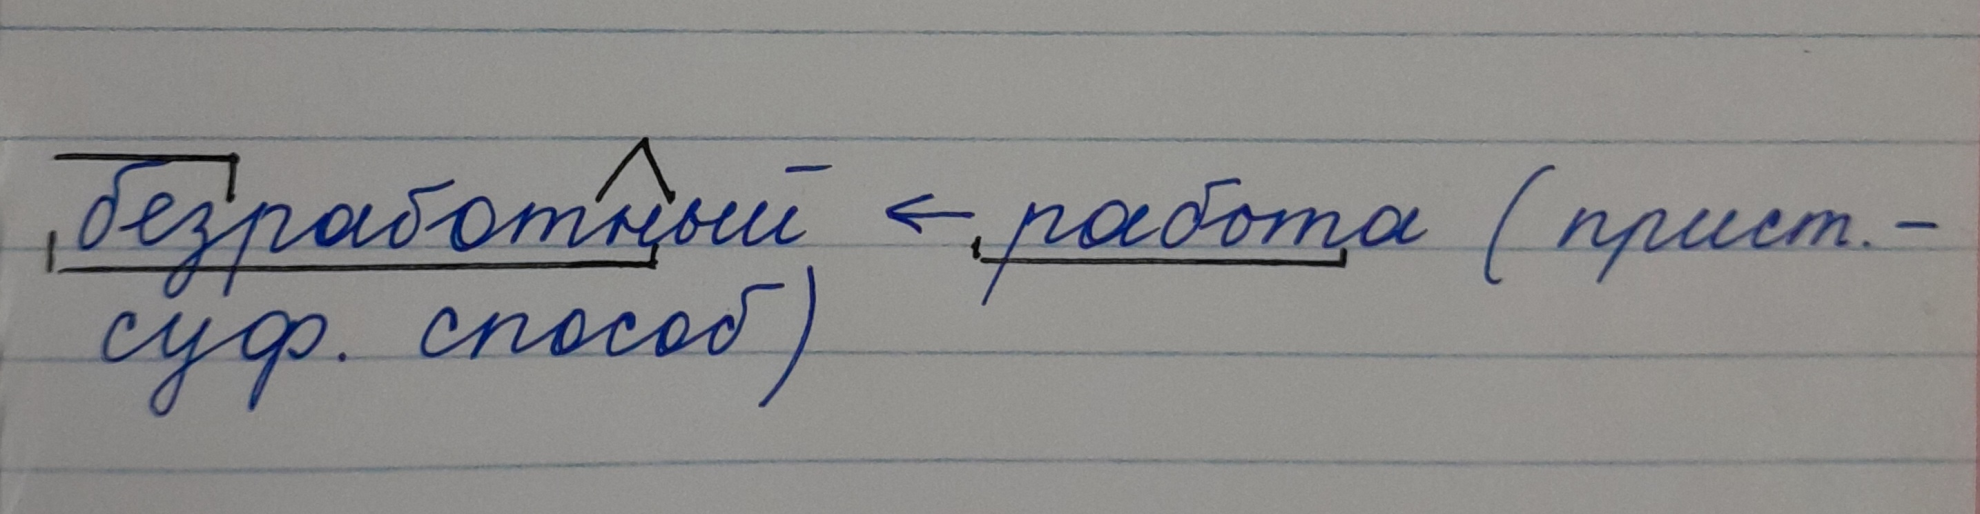 безработный ← работа (прист.-
суф. способ)